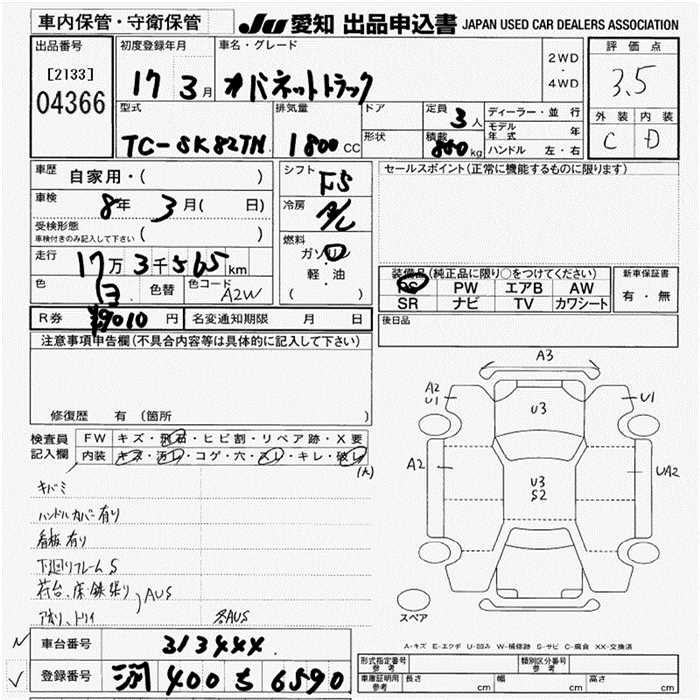 車内保管・守衛保管
JU 愛知 出品申込書 JAPAN USED CAR DEALERS ASSOCIATION
出品番号
[2133]
04366
初度登録年月
17 3月
車名・グレード
バネットトラック
2WD
・
4WD
評価点
3.5
外装 内装
C D
型式
TC-SK82TN
排気量
1800 CC
ドア
形状
定員 3人
積載 850 kg
ディーラー・並行
モデル年式 年
ハンドル 左・右
車歴
自家用・( )
車検
8年 3月( 日)
受検形態
車検付きのみ記入して下さい ( )
走行
17万3千565km
色 白 色替 色コード A2W
シフト
F5
冷房
A/C
燃料
ガソリン
軽・油
( )
セールスポイント(正常に機能するものに限ります)
装備品(純正品に限り○をつけてください)
PS PW エアB AW
SR ナビ TV カワシート
新車保証書
有・無
R券 ¥9010 円 名変通知期限 月 日
後日品
注意事項申告欄(不具合内容等は具体的に記入して下さい)
修復歴 有(箇所
検査員
記入欄
FW キズ・飛石・ヒビ割・リペア跡・X要
内装 キズ・汚レ・コゲ・穴・スレ・キレ・破レ
(大)
キバミ
ハンドルカバー有り
看板有り
下廻りフレームS
荷台、床・鉄張り
AUS
各AUS
A3
A2
U1
U3
U1
A2
U3
S2
UA2
スペア
A-キズ E-エクボ U-凹み W-補修跡 S-サビ C-腐食 XX-交換済
車台番号 313444
登録番号 400 ち 6590
型式指定番号
参考
類別区分番号
参考
車庫証明用
参考
長さ cm 幅 cm 高さ cm